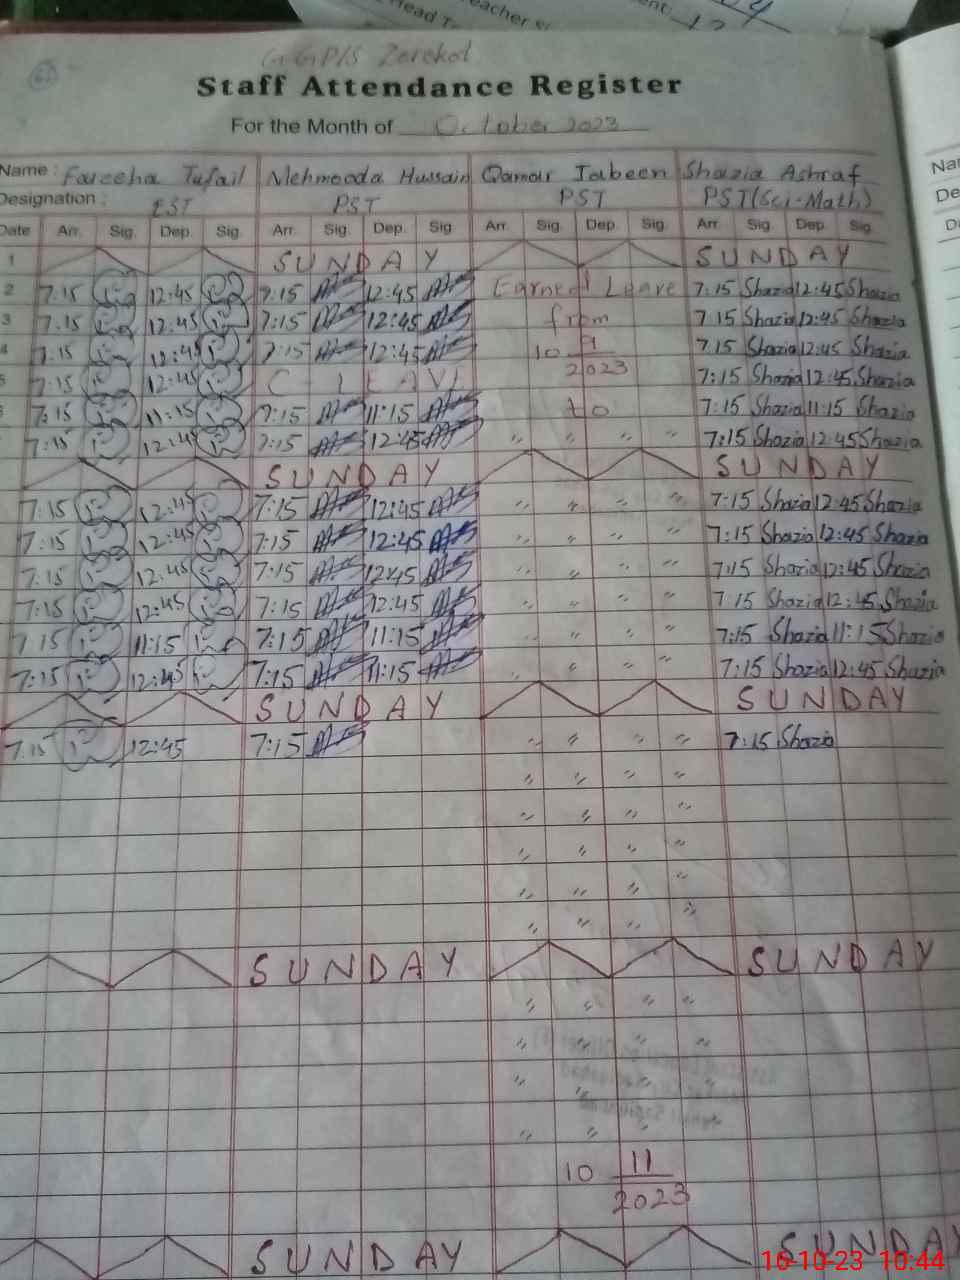 Head T
eacher si
ent:
G.GP/S Zerekot
Staff Attendance Register
For the Month of October 2023
Name : Fareeha Tufail Mehmooda Hussain Qamar Jabeen Shazia Ashraf
Designation : EST PST PST PST(Sci-Math)
Date Arr. Sig. Dep. Sig. Arr. Sig. Dep. Sig Arr. Sig. Dep. Sig. Arr. Sig. Dep. Sig.
1 SUNDAY SUNDAY
2 7:15 12:45 7:15 12:45 Earned Leave 7:15 Shazia 12:45 Shazia
3 7:15 12:45 7:15 12:45 from 7:15 Shazia 12:45 Shazia
4 7:15 12:45 7:15 12:45 10 9 7:15 Shazia 12:45 Shazia
5 7:15 12:45 C-LEAVE 2023 7:15 Shazia 12:45 Shazia
7:15 11:15 7:15 11:15 to 7:15 Shazia 11:15 Shazia
7:15 12:45 7:15 12:45 " " " " 7:15 Shazia 12:45 Shazia
SUNDAY SUNDAY
7:15 12:45 7:15 12:45 " " " " 7:15 Shazia 12:45 Shazia
7:15 12:45 7:15 12:45 " " " " 7:15 Shazia 12:45 Shazia
7:15 12:45 7:15 12:45 " " " " 7:15 Shazia 12:45 Shazia
7:15 12:45 7:15 12:45 " " " " 7:15 Shazia 12:45 Shazia
7:15 11:15 7:15 11:15 " " " " 7:15 Shazia 11:15 Shazia
7:15 12:45 7:15 11:15 " " " " 7:15 Shazia 12:45 Shazia
SUNDAY SUNDAY
7:15 12:45 7:15 " " " " 7:15 Shazia
" " " "
" " " "
" " " "
" " " "
" " " "
SUNDAY SUNDAY
" " " "
" " " "
" " " "
" " "
10 11
2023
SUNDAY SUNDAY
16-10-23 10:44
Na
De
D